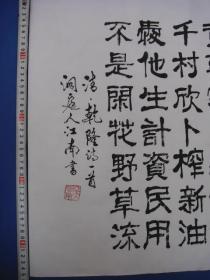 千村欣卜榨新油
愛他生計資民用
不是閑花野草流
清·乾隆詩一首
洞庭人江南書